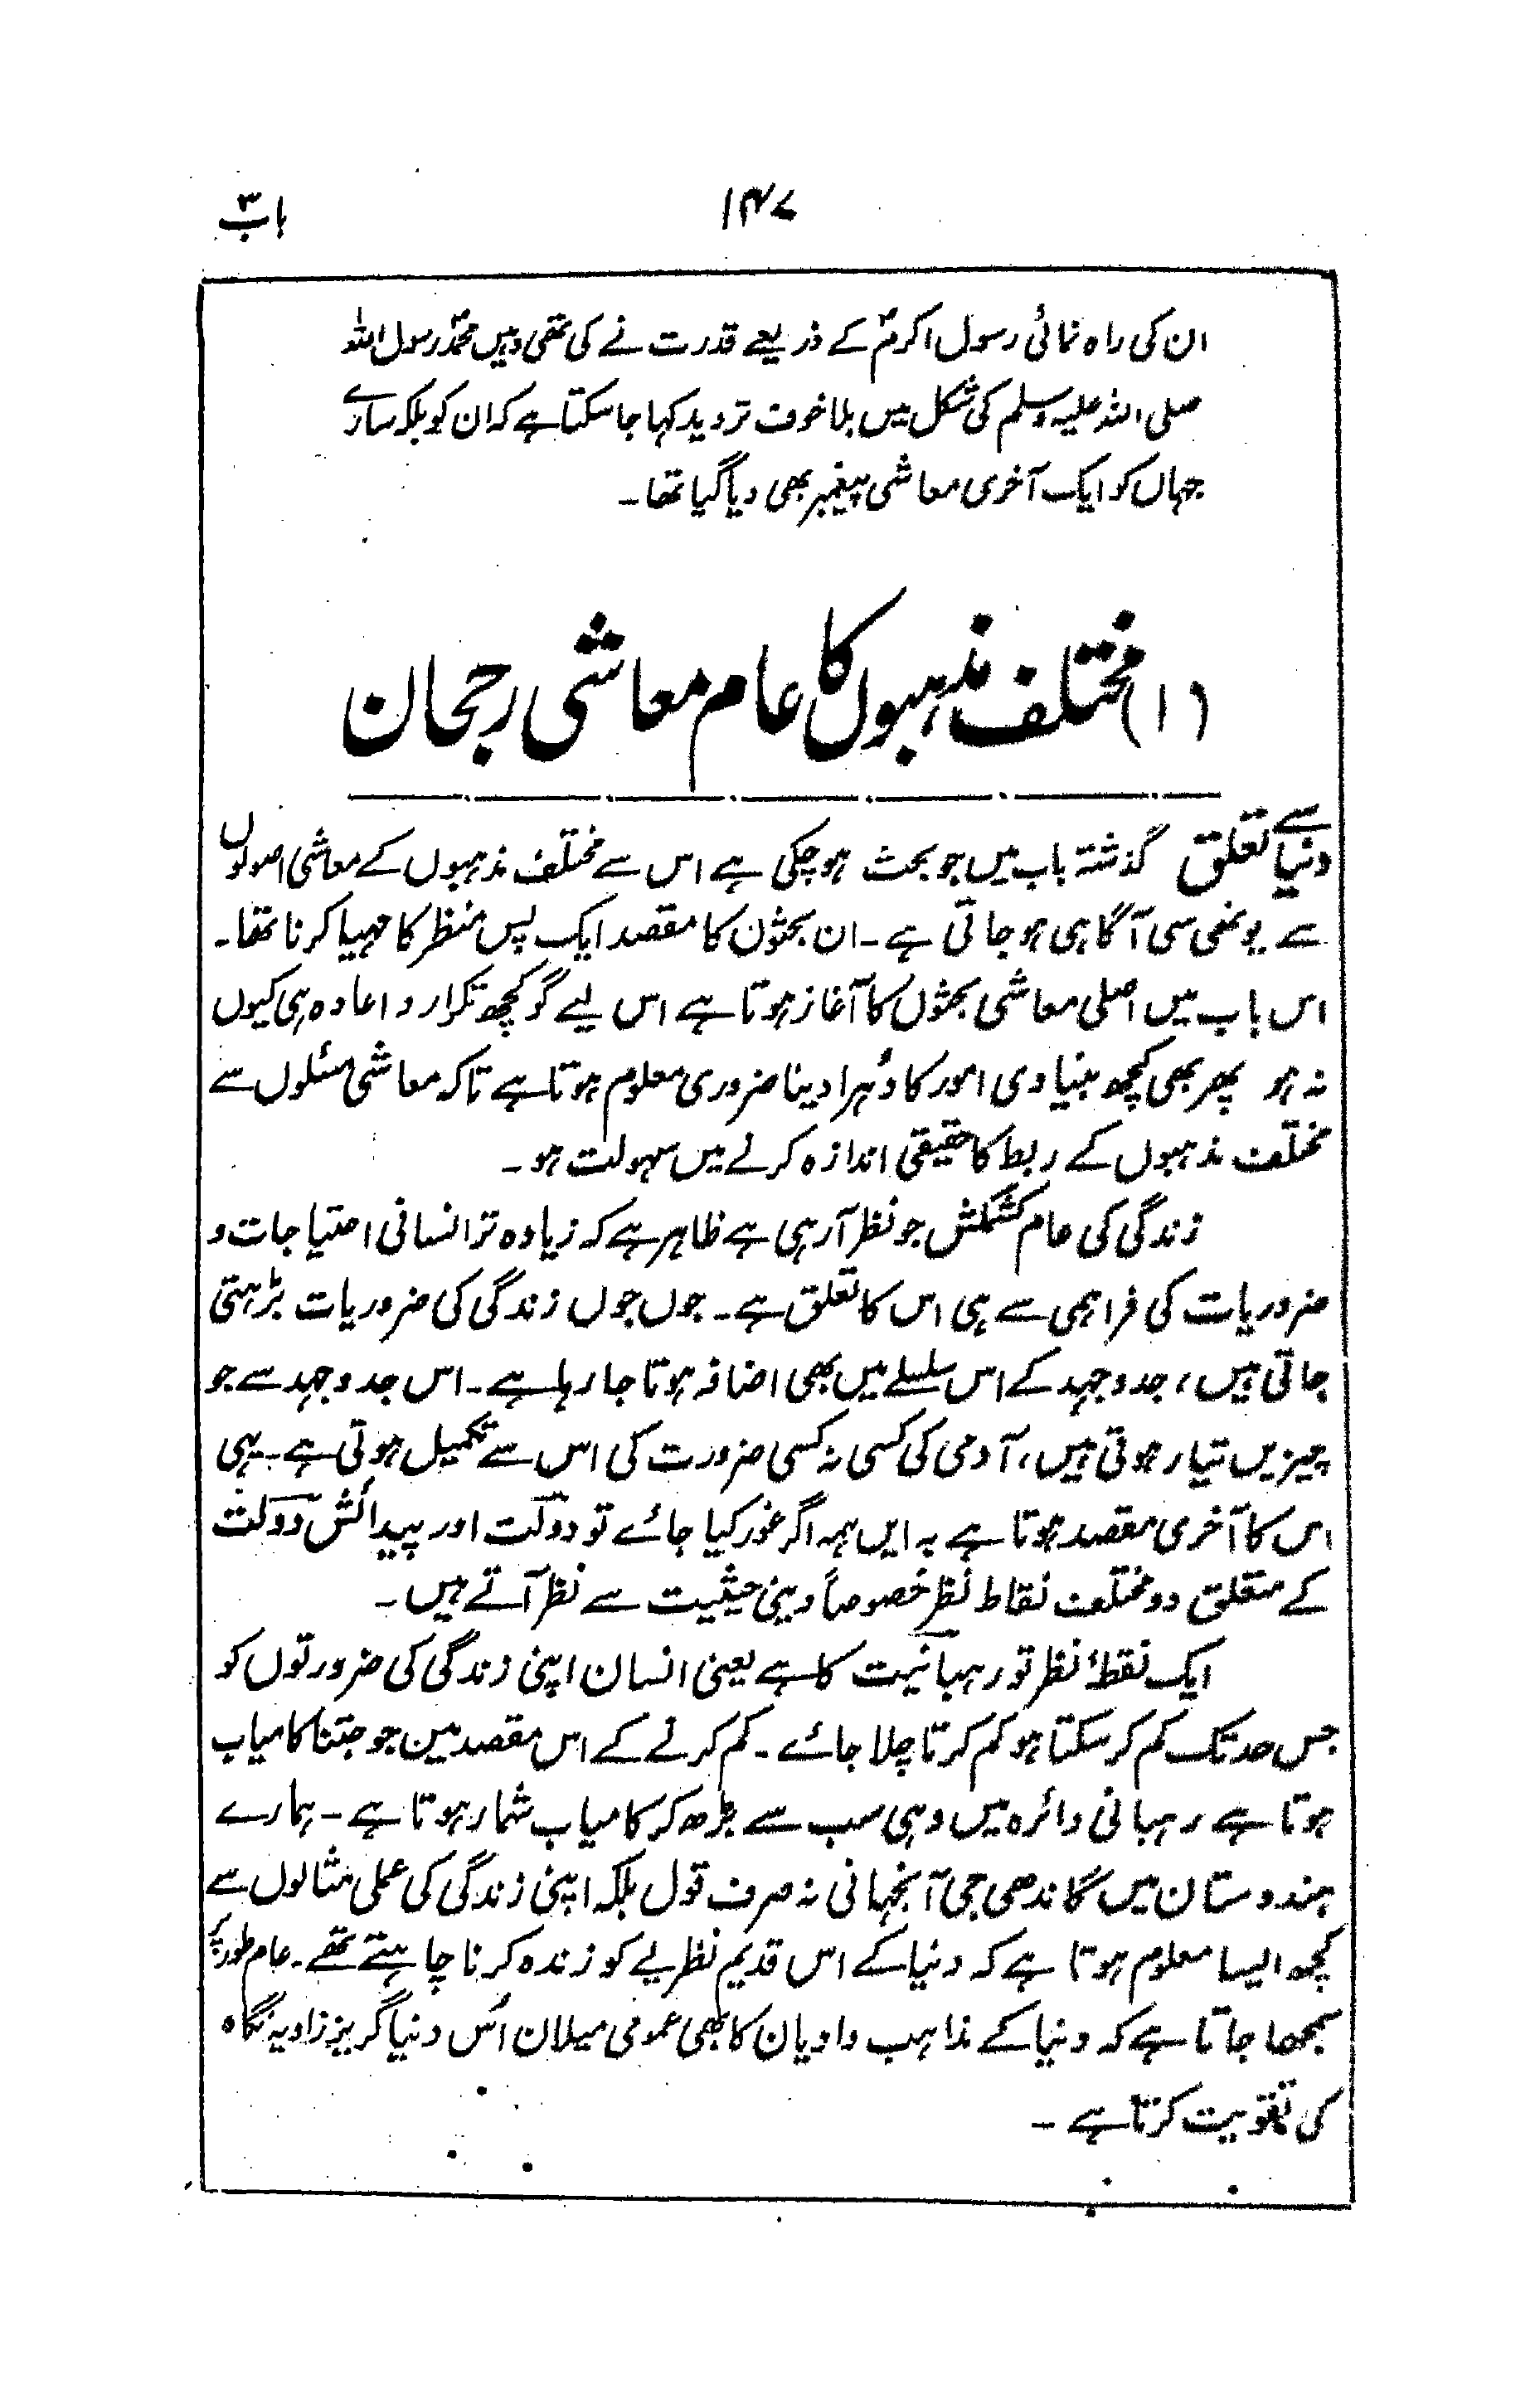 باب۳
۱۴۷
ان کی راہ نمائی رسول اکرمؐ کے ذریعے قدرت نے کی تھی وہیں محمدؐ رسول اللہ
صلی اللہ علیہ وسلم کی شکل میں بلا خوف تردید کہا جا سکتا ہے کہ ان کو بلکہ سارے
جہاں کو ایک آخری معاشی پیغمبر بھی دیا گیا تھا۔
(۱) مختلف مذہبوں کا عام معاشی رجحان
دنیا سے تعلق گذشتہ باب میں جو بحث ہو چکی ہے اس سے مختلف مذہبوں کے معاشی اصولوں
سے یونہی سی آگاہی ہو جاتی ہے۔ ان بحثوں کا مقصد ایک پس منظر کا مہیا کرنا تھا۔
اس باب میں اصلی معاشی بحثوں کا آغاز ہوتا ہے اس لیے گو کچھ تکرار و اعادہ ہی کیوں
نہ ہو پھر بھی کچھ بنیادی امور کا دُہرا دینا ضروری معلوم ہوتا ہے تاکہ معاشی مسئلوں سے
مختلف مذہبوں کے ربط کا حقیقی اندازہ کرنے میں سہولت ہو۔
زندگی کی عام کشمکش جو نظر آ رہی ہے ظاہر ہے کہ زیادہ تر انسانی احتیاجات و
ضروریات کی فراہمی سے ہی اس کا تعلق ہے۔ جوں جوں زندگی کی ضروریات بڑہتی
جاتی ہیں، جد و جہد کے اس سلسلے میں بھی اضافہ ہوتا جا رہا ہے۔ اس جد و جہد سے جو
چیزیں تیار ہوتی ہیں، آدمی کی کسی نہ کسی ضرورت کی اس سے تکمیل ہوتی ہے۔ یہی
اس کا آخری مقصد ہوتا ہے بہ ایں ہمہ اگر غور کیا جائے تو دولت اور پیدائش دولت
کے متعلق دو مختلف نقاط نظر خصوصاً دینی حیثیت سے نظر آتے ہیں۔
ایک نقطۂ نظر تو رہبانیت کا ہے یعنی انسان اپنی زندگی کی ضرورتوں کو
جس حد تک کم کر سکتا ہو کم کرتا چلا جائے۔ کم کرنے کے اس مقصد میں جو جتنا کامیاب
ہوتا ہے رہبانی دائرہ میں وہی سب سے بڑھ کر کامیاب شمار ہوتا ہے۔ ہمارے
ہندوستان میں گاندھی جی آنجہانی نہ صرف قول بلکہ اپنی زندگی کی عملی مثالوں سے
کچھ ایسا معلوم ہوتا ہے کہ دنیا کے اس قدیم نظریے کو زندہ کرنا چاہتے تھے۔ عام طور پر
سمجھا جاتا ہے کہ دنیا کے مذاہب و ادیان کا بھی عمومی میلان اُس دنیا گریز زاویہ نگاہ
کی تقویت کرتا ہے۔